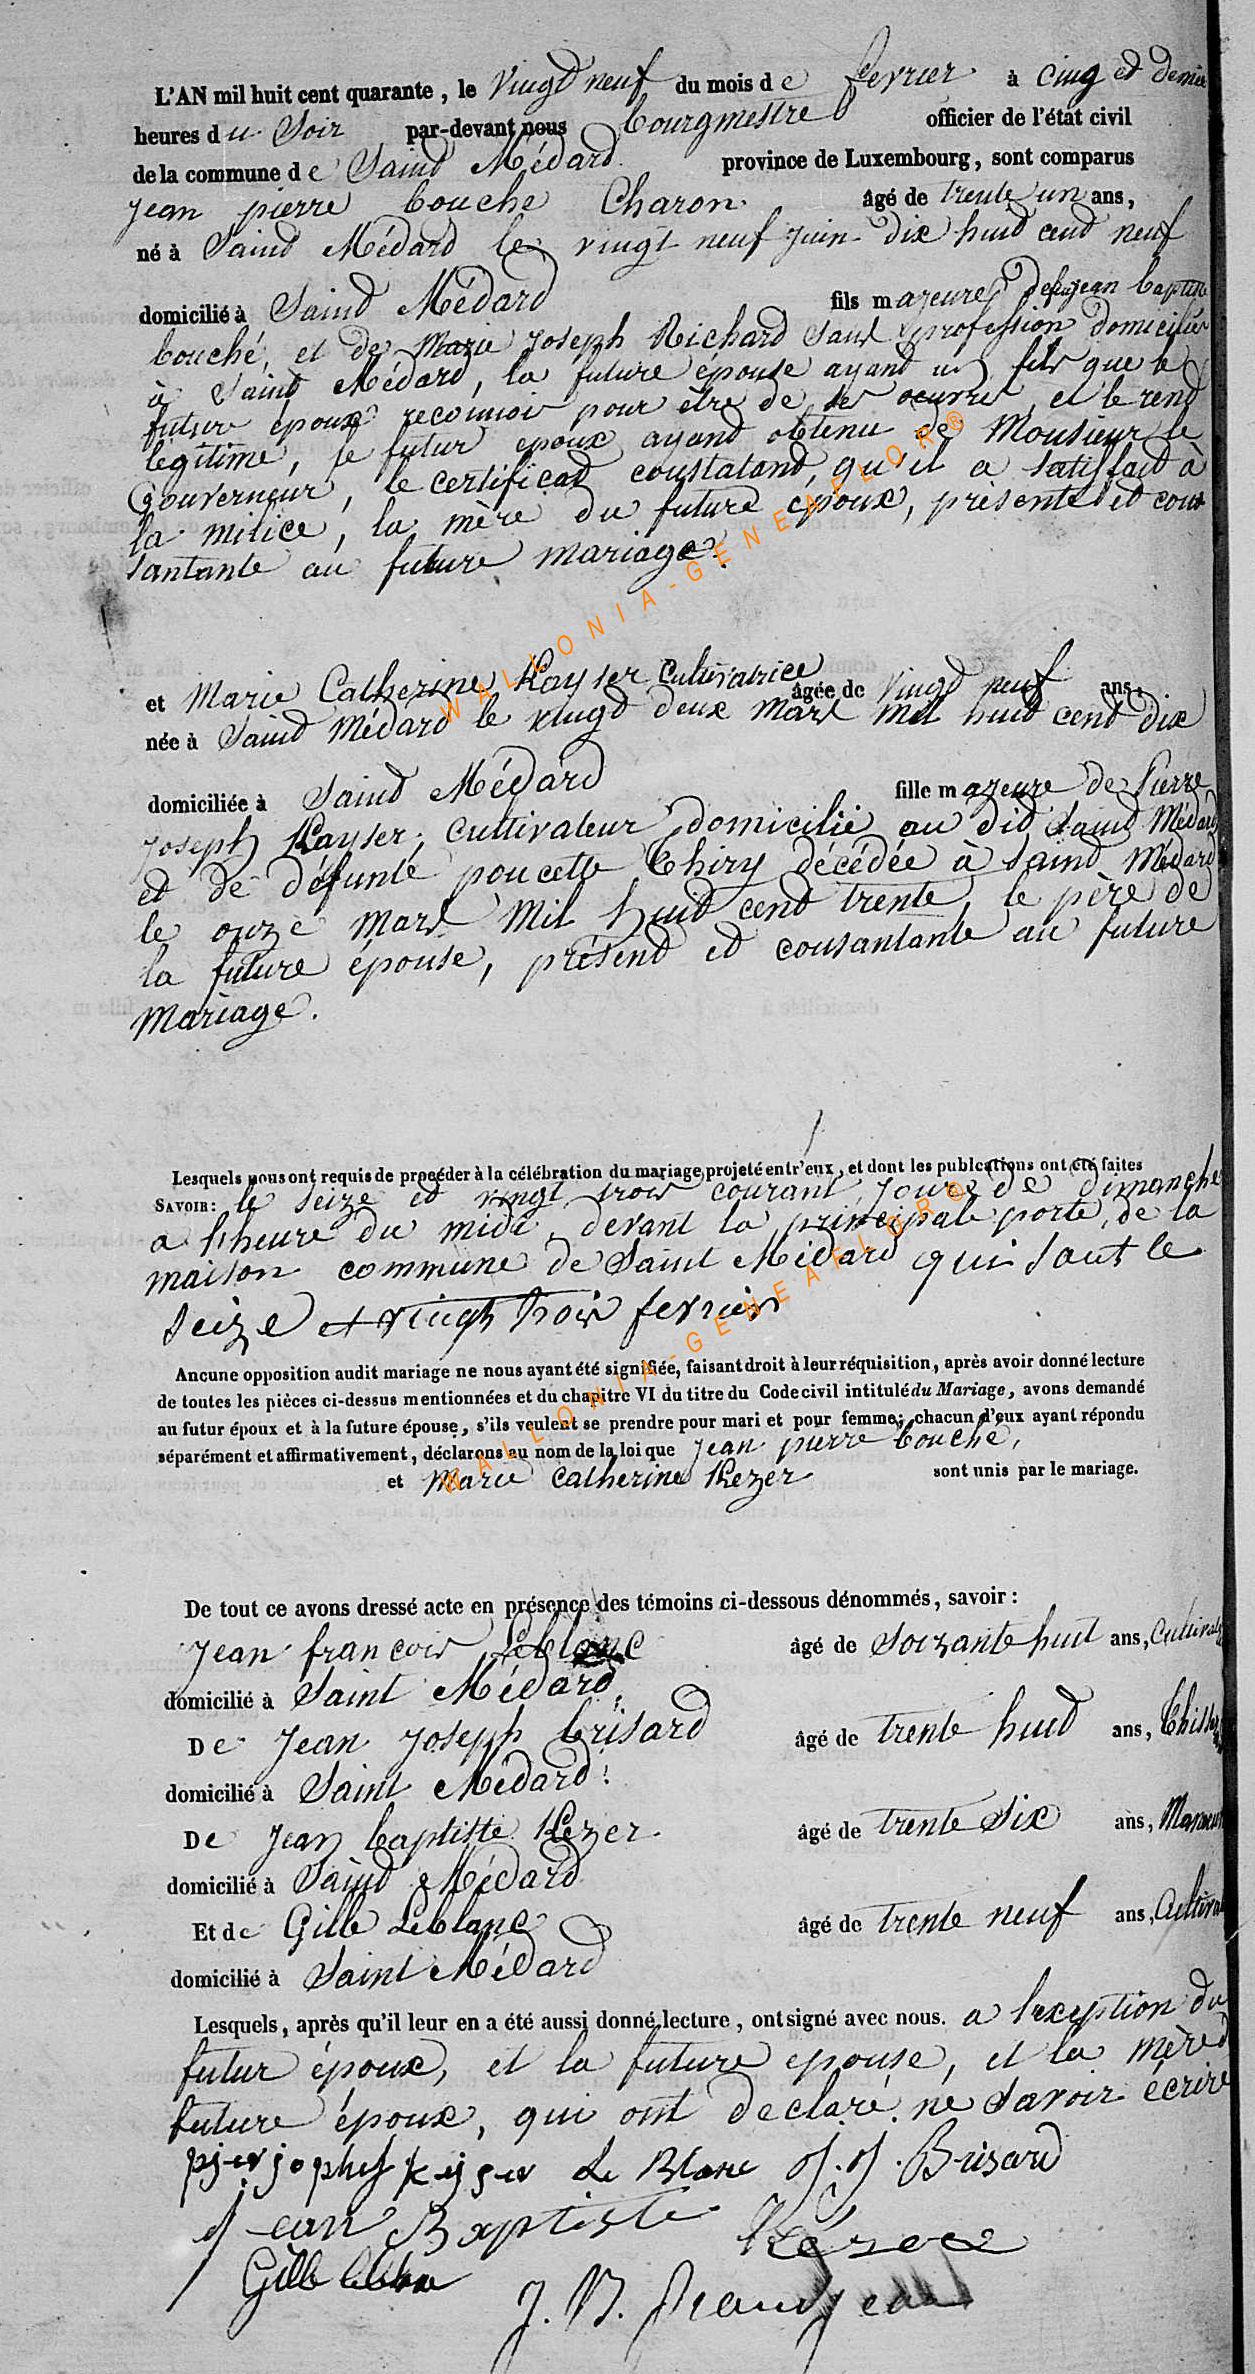 L'AN mil huit cent quarante, le vingd neuf du mois de fevrier à cinq et demie
heures du Soir par-devant nous bourgmestre officier de l'état civil
de la commune de Saind Médard province de Luxembourg, sont comparus
jean pierre bouche Charon âgé de trente un ans,
né à Saind Médard le vingt neuf juin dix huid cend neuf
domicilié à Saind Médard fils majeure jean baptiste
bouché, et de Marie joseph Richard sans profession domicilié
à Saind Médard, la future épouse ayand un fils que le
future époux reconnois pour être de ses oeuvres, et le rend
légitime, le futur époux ayand obtenu de Monsieur le
Gouverneur, le certificad constatand, qu'il a satisfaid à
la milice, la mère du future époux, présente et con
santante au future mariage.
et Marie Catherine Kayser Cultivatrice âgée de vingd neuf ans,
née à Saind Médard le vingd deux mars mil huid cend dix
domiciliée à Saind Médard fille majeure de Pierre
joseph Kayser, cultivateur domicilié au did Saind Médard
et de défunte poucette thiry décédée à Saind Médard
le onze mars mil huid cend trente, le père de
la future épouse, présend ed consantante au future
mariage.
Lesquels nous ont requis de procéder à la célébration du mariage projeté entr'eux, et dont les publcations ont été faites
SAVOIR: le seize et vingt trois courant jours de dimanche
a l'heure du midi, devant la principale porte, de la
maison commune de Saint Médard qui sont le
seize et vingt trois fevrier
Aucune opposition audit mariage ne nous ayant été signifiée, faisant droit à leur réquisition, après avoir donné lecture
de toutes les pièces ci-dessus mentionnées et du chapitre VI du titre du Code civil intitulé du Mariage, avons demandé
au futur époux et à la future épouse, s'ils veulent se prendre pour mari et pour femme; chacun d'eux ayant répondu
séparément et affirmativement, déclarons au nom de la loi que jean pierre bouché,
et Marie Catherine Kezer sont unis par le mariage.
De tout ce avons dressé acte en présence des témoins ci-dessous dénommés, savoir:
jean francois Leblanc âgé de soixante huit ans,
domicilié à Saint Médard,
De jean joseph brisard âgé de trente huid ans,
domicilié à Saint Médard
De jean baptiste Kezer âgé de trente six ans,
domicilié à Saind Médard
Et de Gille Leblanc âgé de trente neuf ans,
domicilié à Saint Médard
Lesquels, après qu'il leur en a été aussi donné lecture, ont signé avec nous. a lexception du
futur époux, et la future epouse, et la mère
future époux, qui ont declaré ne savoir écrire
Le Blanc J. J. Brisard
Jean Baptiste Kézer
Gille leblan
WALLONIA-GENEAFLOR®
WALLONIA-GENEAFLOR®